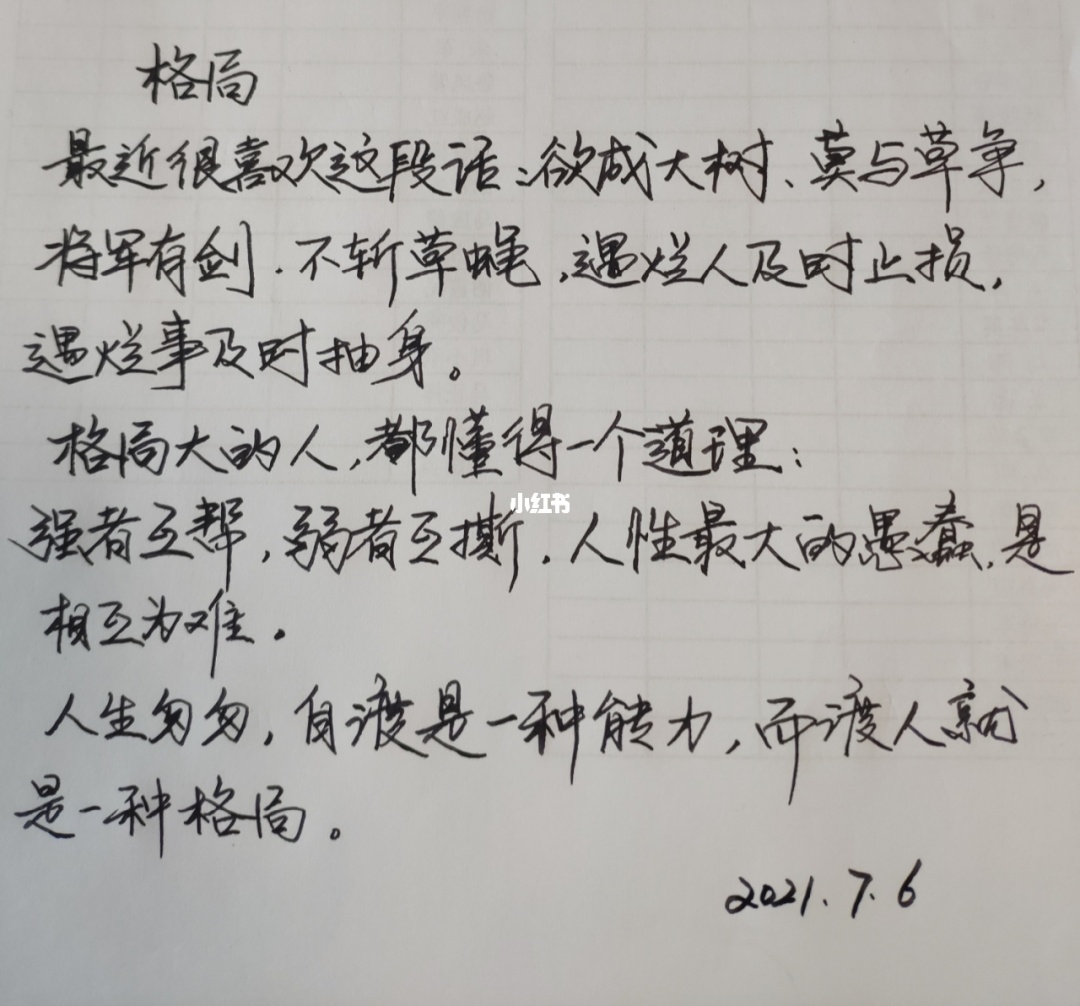 格局
最近很喜欢这段话:欲成大树、莫与草争,
将军有剑.不斩草蝇,遇烂人及时止损,
遇烂事及时抽身。
格局大的人,都懂得一个道理:
小红书
强者互帮,弱者互撕.人性最大的愚蠢,是
相互为难。
人生匆匆,自渡是一种能力,而渡人就
是一种格局。
2021.7.6